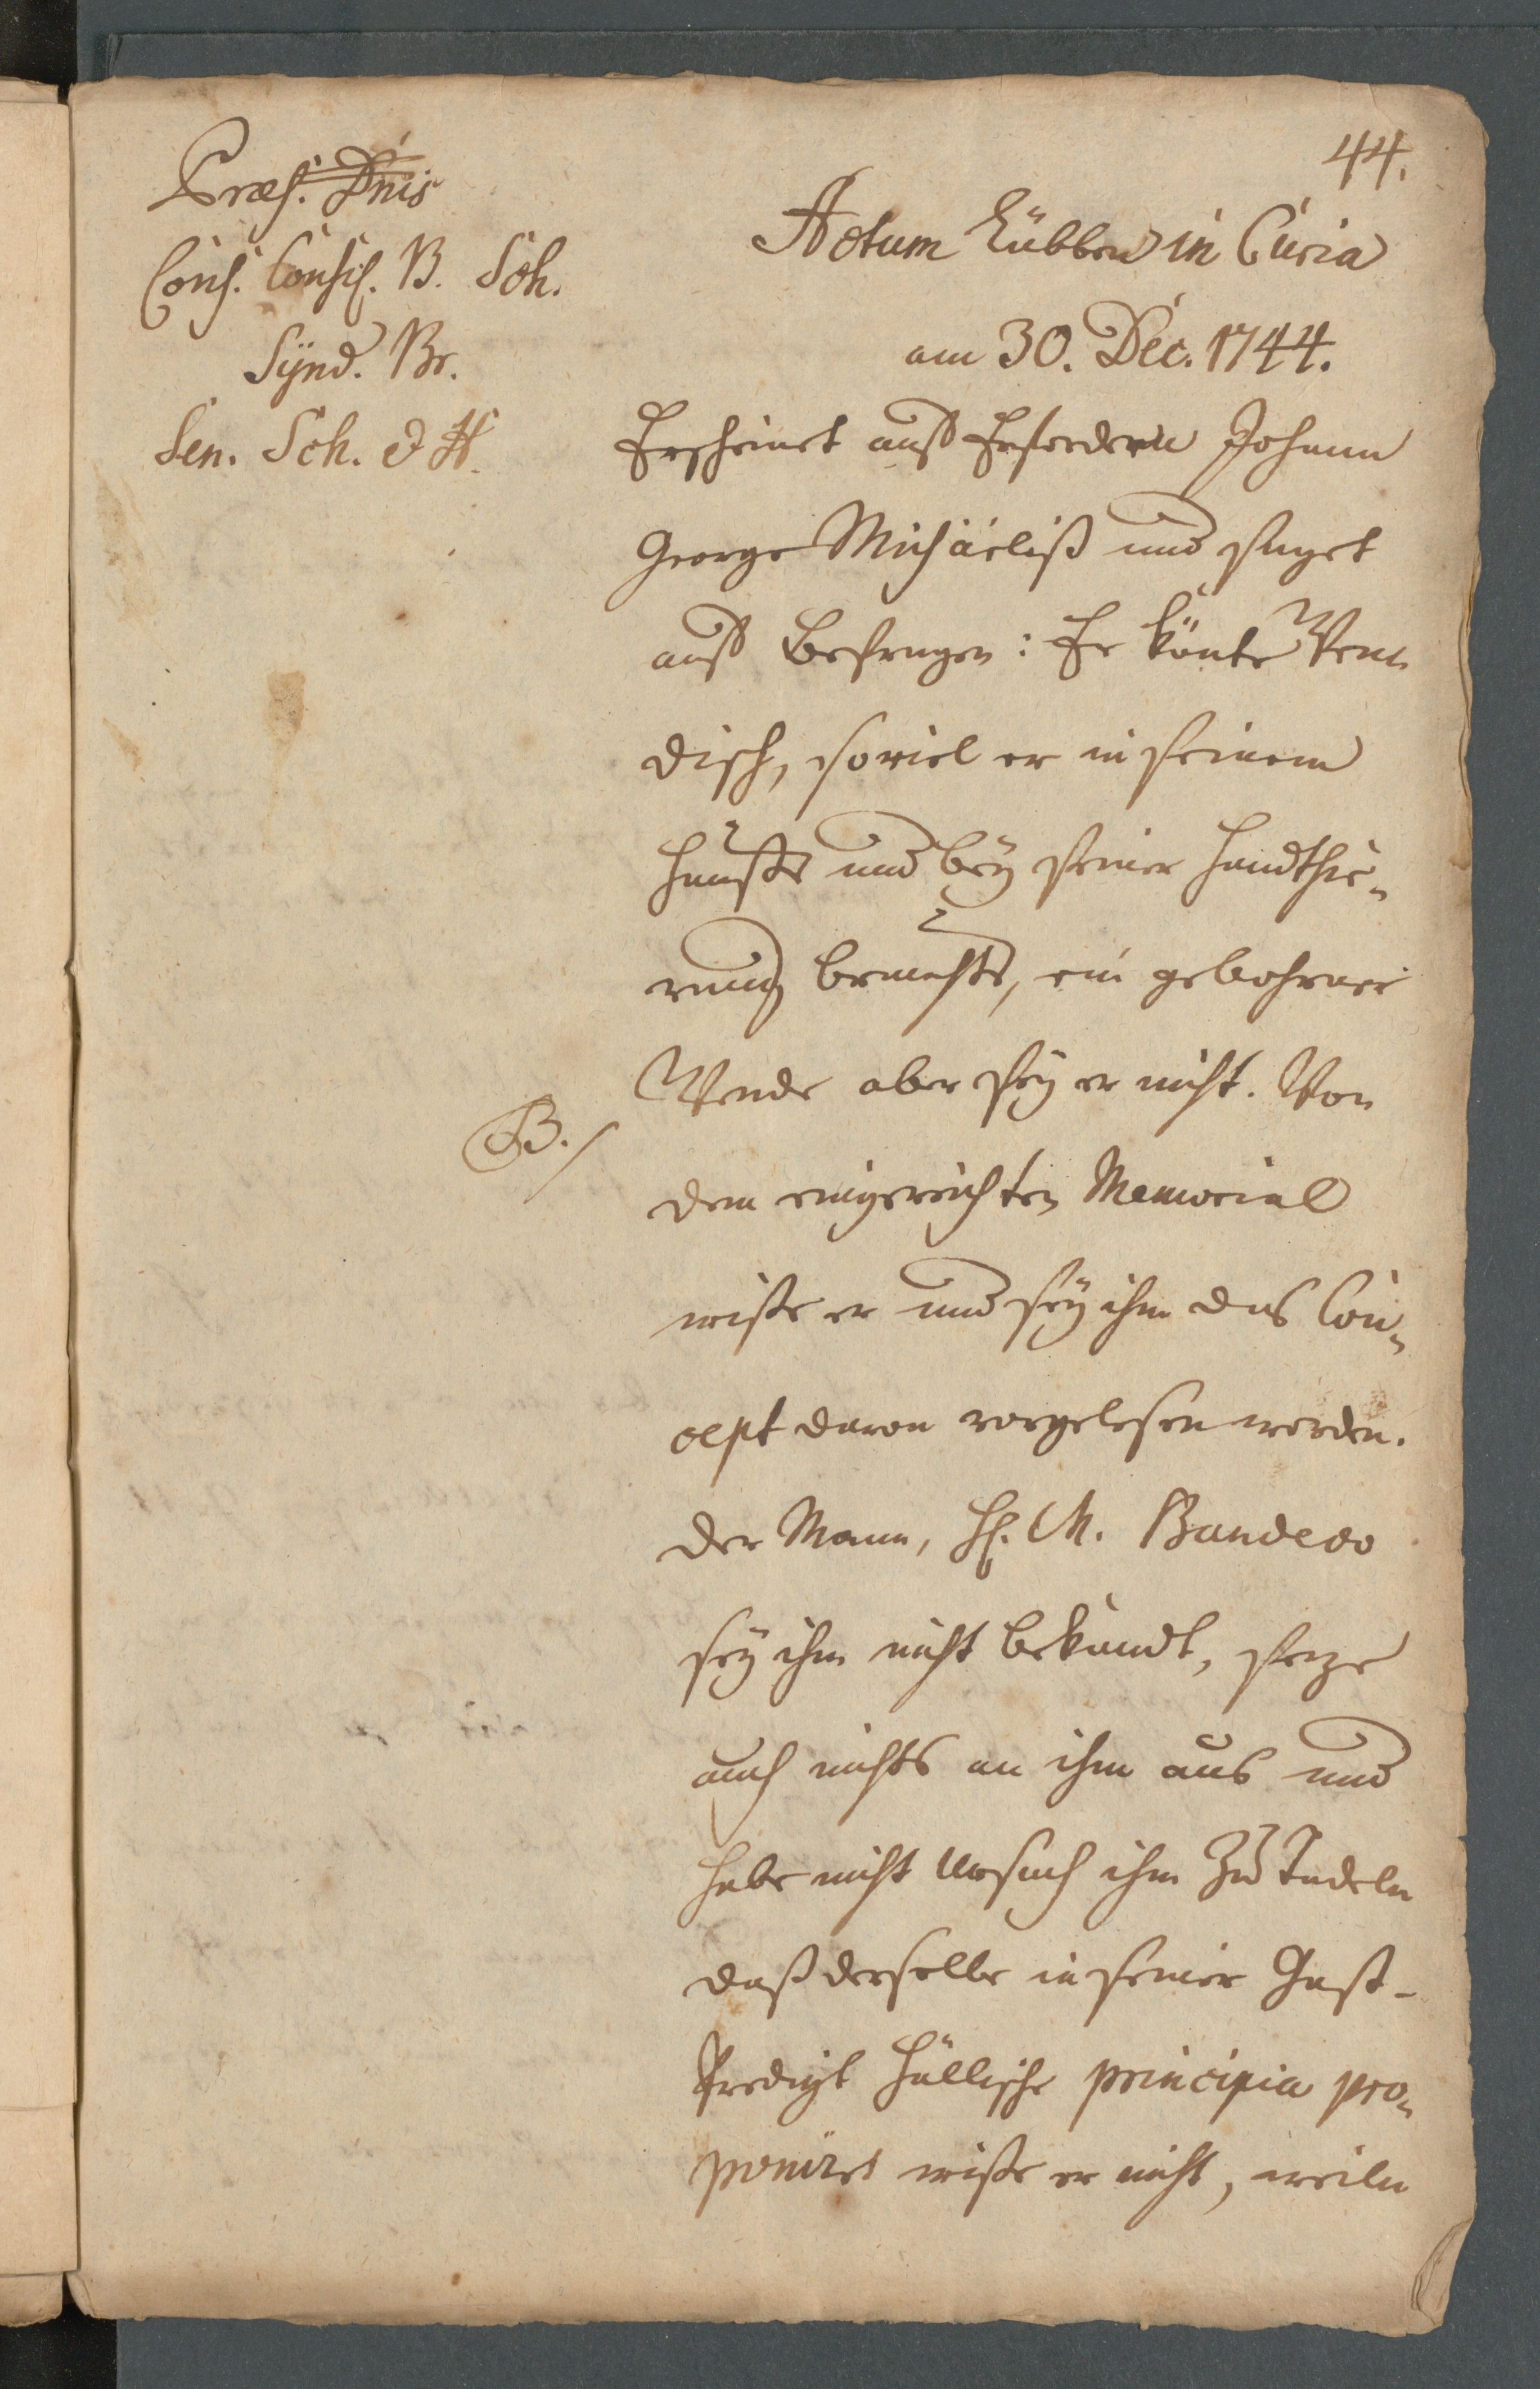 44.
Præs. Dnis
Cons. Consist. B. Sch.
Synd. Br.
Sen. Sch. & H.
Actum Lübben in Curia
am 30. Dec. 1744.
Erscheinet auff Erfordern Johann
George Michäeliß und saget
auff Befragen: Er könte Wen-
disch, soviel er in seinem
Hauße und bey seiner Handthie-
rung brauchte, ein gebohrner
Wende aber sey er nicht. Von
B./
dem eingereichten Memorial
wiße er und sey ihm das Con-
cept davon vorgelesen worden.
Der Mann, H. M. Bandeco
sey ihm nicht bekandt, seze
auch nichts an ihm aus und
habe nicht Ursach ihn zu tadeln
daß derselbe in seiner Gast-
Predigt Hällische principia pro-
poniret wiße er nicht, weiln